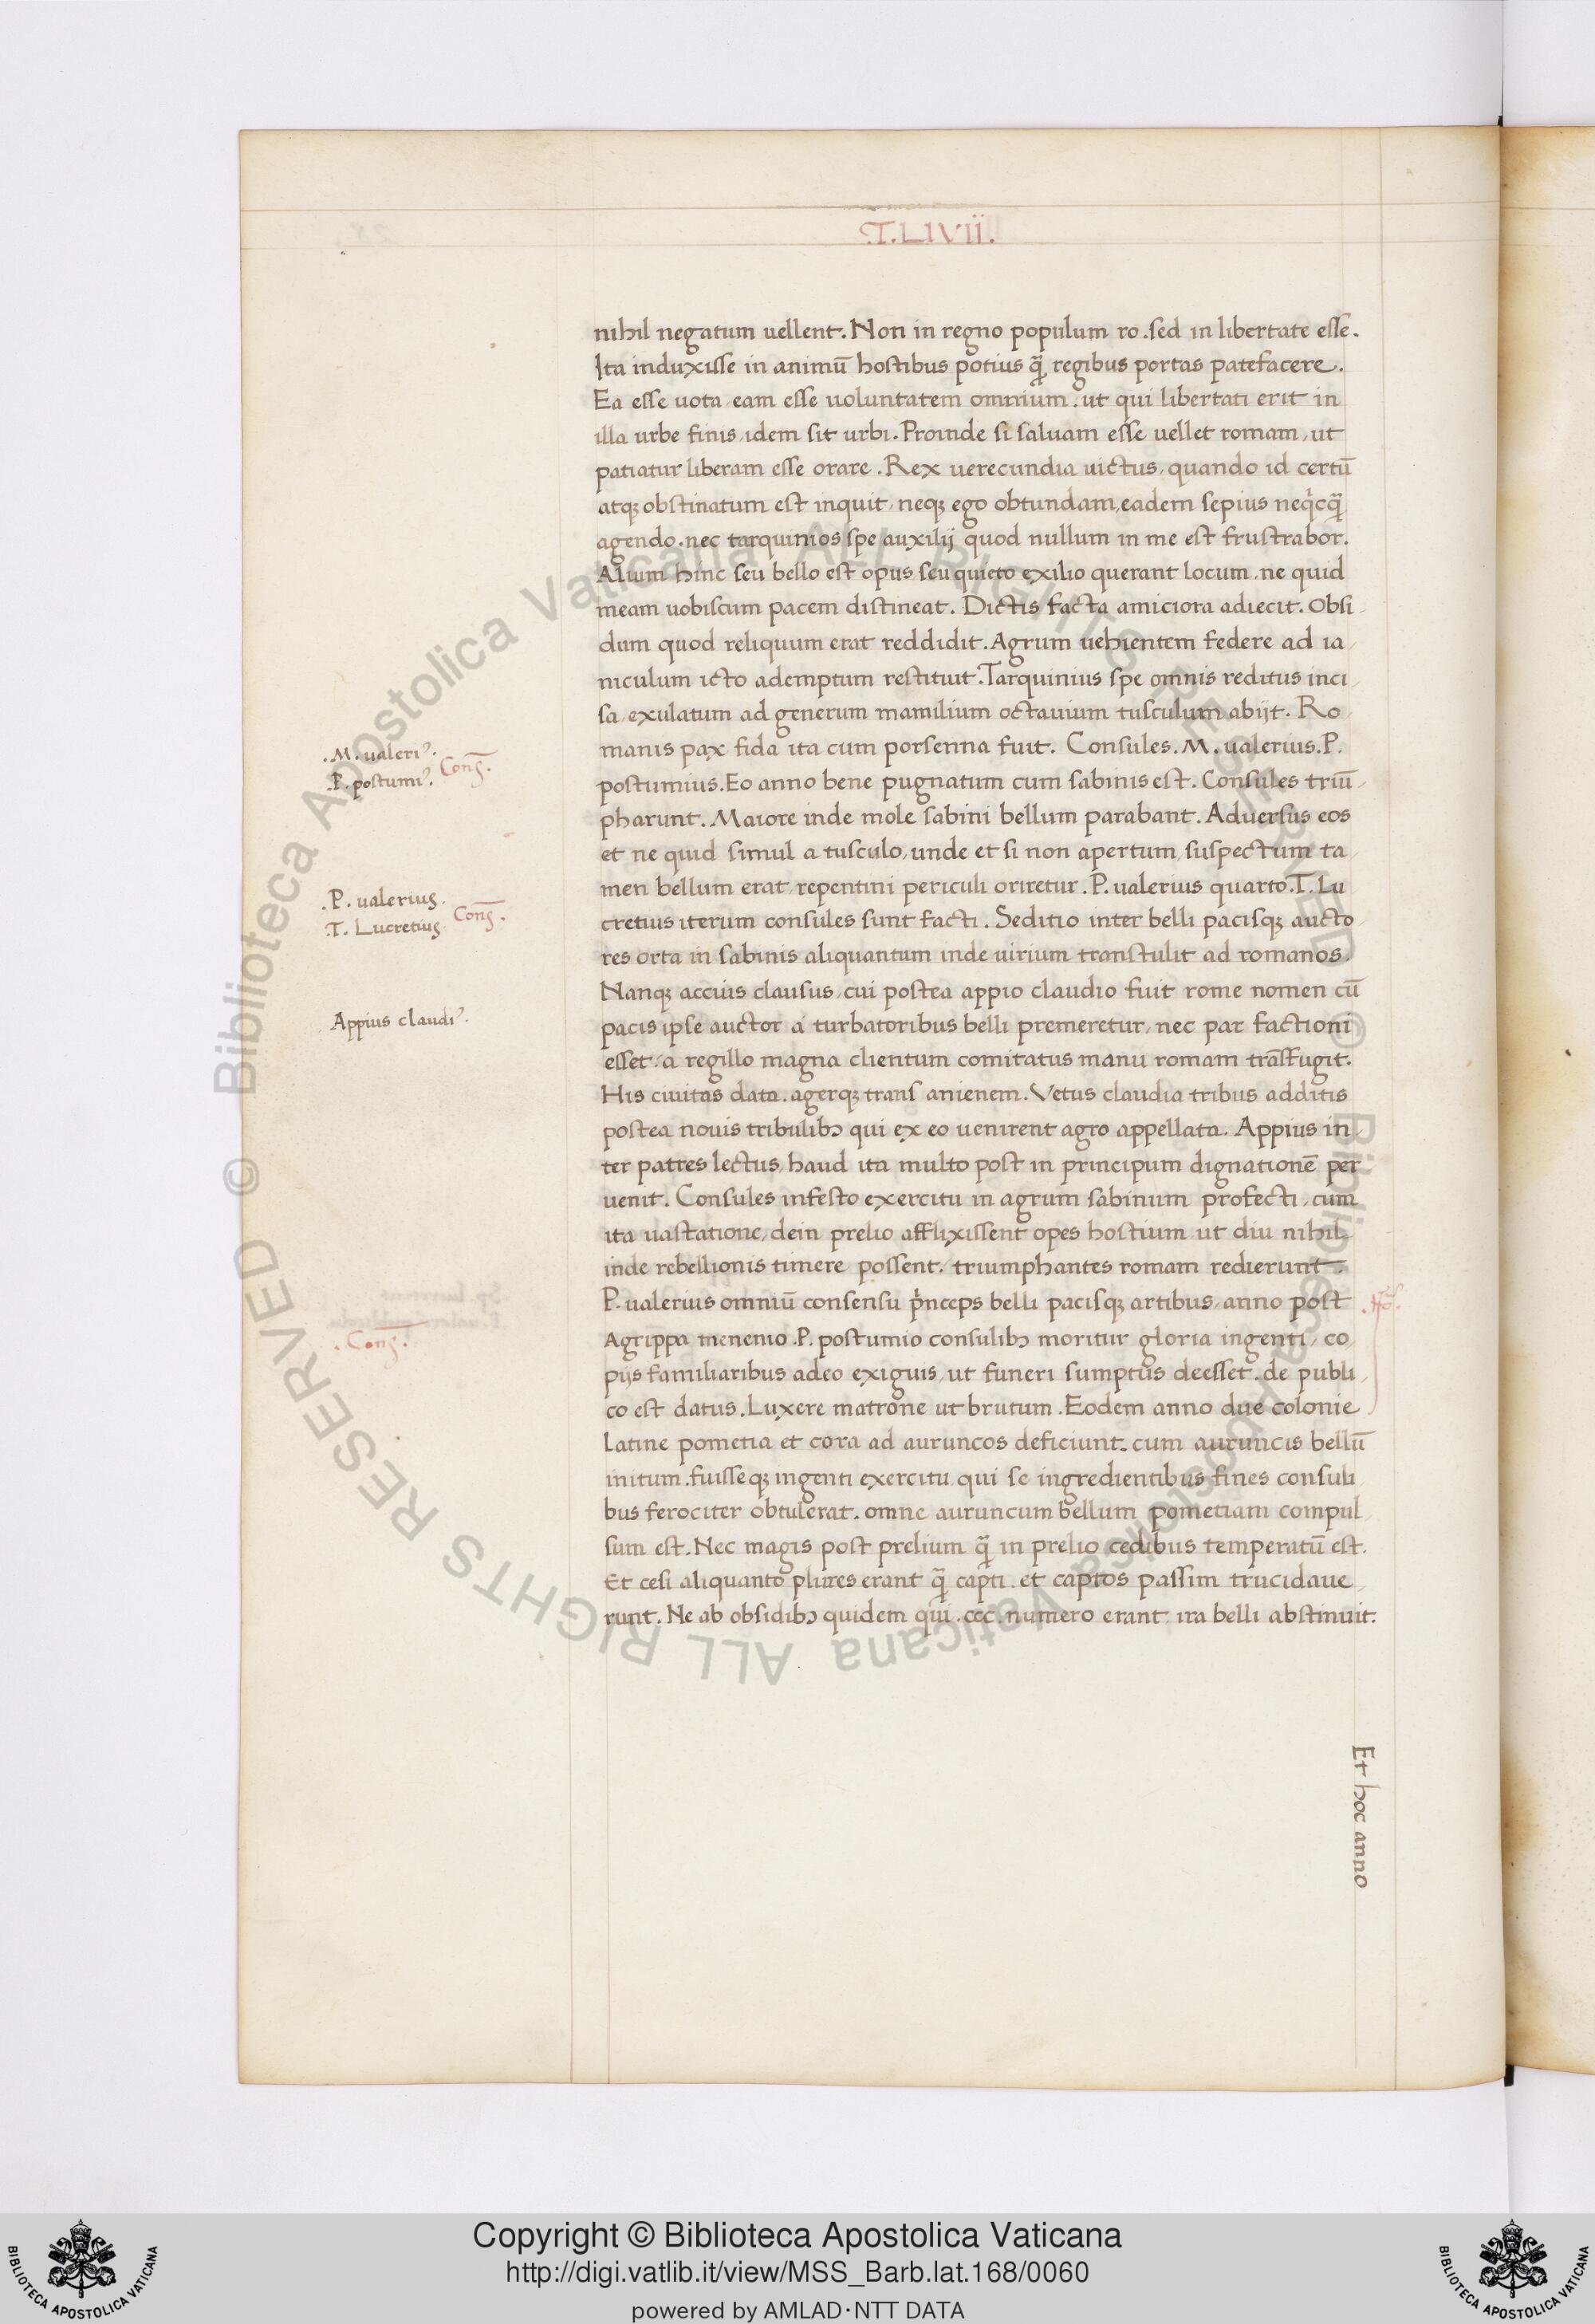 T. LIVII.
nihil negatum uellent. Non in regno populum ro. sed in libertate esse.
Ita induxisse in animū hostibus potius q̄ regibus portas patefacere.
Ea esse uota, eam esse uoluntatem omnium. ut qui libertati erit in
illa urbe finis, idem sit urbi. Proinde si saluam esse uellet romam, ut
patiatur liberam esse orare. Rex uerecundia uictus, quando id certū
atq; obstinatum est inquit, neq; ego obtundam, eadem sepius neqͥcq̄
agendo. nec tarquinios spe auxilij quod nullum in me est frustrabor.
Alium hinc seu bello est opus, seu quieto exilio querant locum, ne quid
meam uobiscum pacem distineat. Dictis facta amiciora adiecit. Obsi
dum quod reliquum erat reddidit. Agrum uehientem federe ad ia
niculum icto ademptum restituit. Tarquinius spe omnis reditus inci
sa, exulatum ad generum mamilium octauium tusculum abijt. Ro
manis pax fida ita cum porsenna fuit. Consules. M. ualerius. P.
.M. ualeriꝰ.
P. postumiꝰ. Cons̄.
postumius. Eo anno bene pugnatum cum sabinis est. Consules triū
pharunt. Maiore inde mole sabini bellum parabant. Aduersus eos
et ne quid simul a tusculo, unde et si non apertum, suspectum ta
men bellum erat, repentini periculi oriretur. P. ualerius quarto. T. Lu
.P. ualerius.
T. Lucretius. Cons̄.
cretius iterum consules sunt facti. Seditio inter belli pacisq; aucto
res orta in sabinis aliquantum inde uirium transtulit ad romanos.
Nanq; accius clausus, cui postea appio claudio fuit rome nomen cū
pacis ipse auctor a turbatoribus belli premeretur, nec par factioni
Appius claudiꝰ.
esset, a regillo magna clientum comitatus manu romam trāsfugit.
His ciuitas data. agerq; trans anienem. Vetus claudia tribus additis
postea nouis tribulibꝫ qui ex eo uenirent agro appellata. Appius in
ter patres lectus, haud ita multo post in principum dignationē per
uenit. Consules infesto exercitu in agrum sabinum profecti, cum
ita uastatione, dein prelio afflixissent opes hostium ut diu nihil
inde rebellionis timere possent. triumphantes romam redierunt.
P. ualerius omniū consensu pͥnceps belli pacisq; artibus, anno post
Agrippa menenio. P. postumio consulibꝫ moritur gloria ingenti, co
. Cons̄.
pijs familiaribus adeo exiguis, ut funeri sumptus deesset. de publi
co est datus. Luxere matrone ut brutum. Eodem anno due colonie
Latine pometia et cora ad auruncos deficiunt. cum auruncis bellū
initum. fuisseq; ingenti exercitu qui se ingredientibus fines consuli
bus ferociter obtulerat. omne auruncum bellum pometiam compul
sum est. Nec magis post prelium q̄ in prelio cedibus temperatū est.
Et cesi aliquanto plures erant q̄ capti. et captos passim trucidaue
runt. Ne ab obsidibꝫ quidem qui .ccc. numero erant ira belli abstinuit.
Et hoc anno
© Biblioteca Apostolica Vaticana ALL RIGHTS RESERVED © Biblioteca Apostolica Vaticana ALL RIGHTS RESERVED
Copyright © Biblioteca Apostolica Vaticana
http://digi.vatlib.it/view/MSS_Barb.lat.168/0060
powered by AMLAD·NTT DATA
BIBLIOTECA APOSTOLICA VATICANA
BIBLIOTECA APOSTOLICA VATICANA